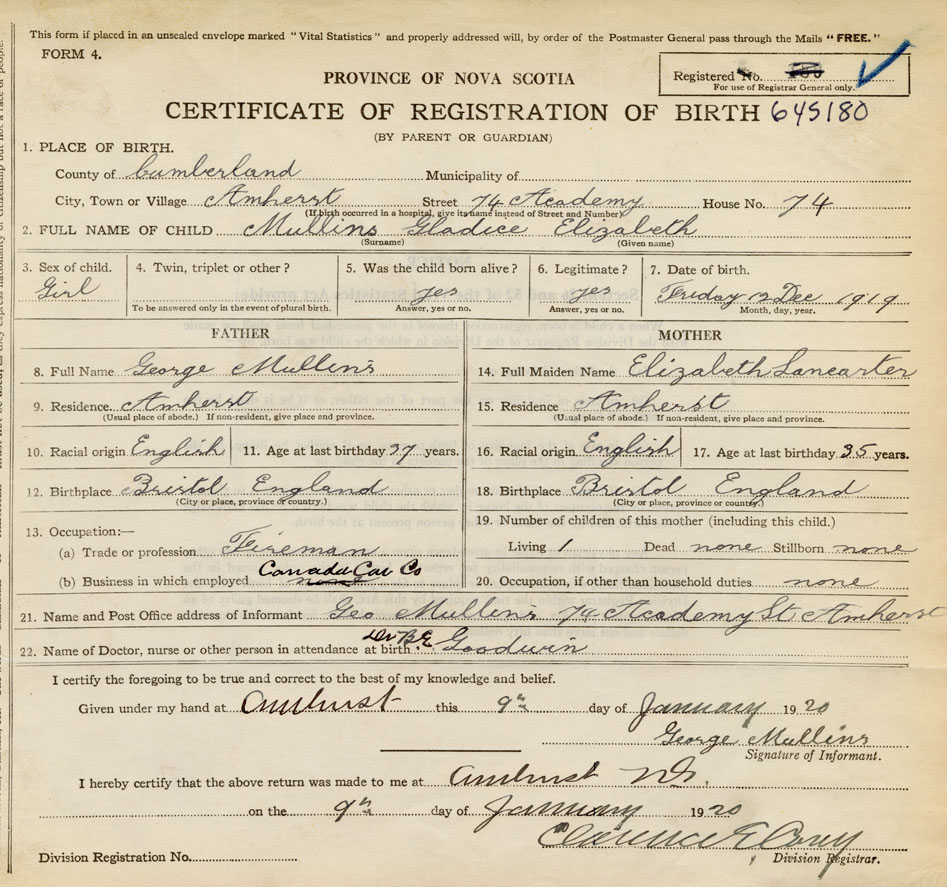 This form if placed in an unsealed envelope marked "Vital Statistics" and properly addressed will, by order of the Postmaster General pass through the Mails "FREE."
FORM 4.
PROVINCE OF NOVA SCOTIA
Registered No.
For use of Registrar General only.
CERTIFICATE OF REGISTRATION OF BIRTH 645180
(BY PARENT OR GUARDIAN)
1. PLACE OF BIRTH.
County of Cumberland Municipality of
City, Town or Village Amherst Street 74 Academy House No. 74
(If birth occurred in a hospital, give its name instead of Street and Number)
2. FULL NAME OF CHILD Mullins Gladice Elizabeth
(Surname) (Given name)
3. Sex of child. 4. Twin, triplet or other? 5. Was the child born alive? 6. Legitimate? 7. Date of birth.
Girl yes yes Friday 12 Dec 1919
To be answered only in the event of plural birth. Answer, yes or no. Answer, yes or no. Month, day, year.
FATHER MOTHER
8. Full Name George Mullins 14. Full Maiden Name Elizabeth Lancarter
9. Residence Amherst 15. Residence Amherst
(Usual place of abode.) If non-resident, give place and province. (Usual place of abode.) If non-resident, give place and province.
10. Racial origin English 11. Age at last birthday 37 years. 16. Racial origin English 17. Age at last birthday 35 years.
12. Birthplace Bristol England 18. Birthplace Bristol England
(City or place, province or country.) (City or place, province or country.)
13. Occupation:— 19. Number of children of this mother (including this child.)
(a) Trade or profession Fireman Living 1 Dead none Stillborn none
(b) Business in which employed none Canada Car Co 20. Occupation, if other than household duties. none
21. Name and Post Office address of Informant Geo Mullins 74 Academy St Amherst
22. Name of Doctor, nurse or other person in attendance at birth. Dr B.E. Goodwin
I certify the foregoing to be true and correct to the best of my knowledge and belief.
Given under my hand at Amherst this 9th day of January 1920
George Mullins
Signature of Informant.
I hereby certify that the above return was made to me at Amherst NS.
on the 9th day of January 1920
Clarence E Cory
Division Registration No. Division Registrar.